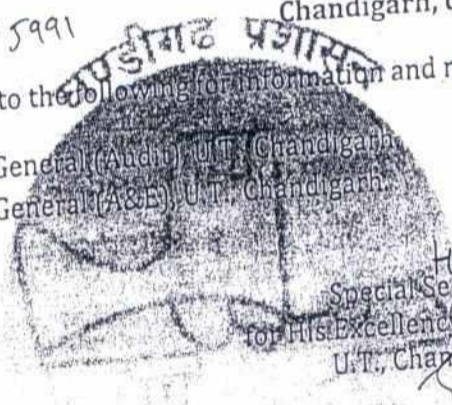 5991
Chandigarh,
चण्डीगढ़ प्रशासन
to the following for information and
General (Audit), U.T., Chandigarh.
General (A&E), U.T., Chandigarh.
Special
for His Excellenc
U.T., Chan